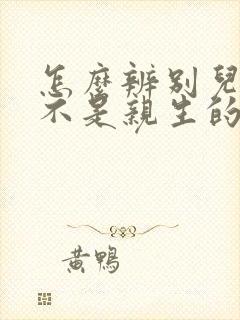 怎麼辨別兒
不是親生的
黃鴨